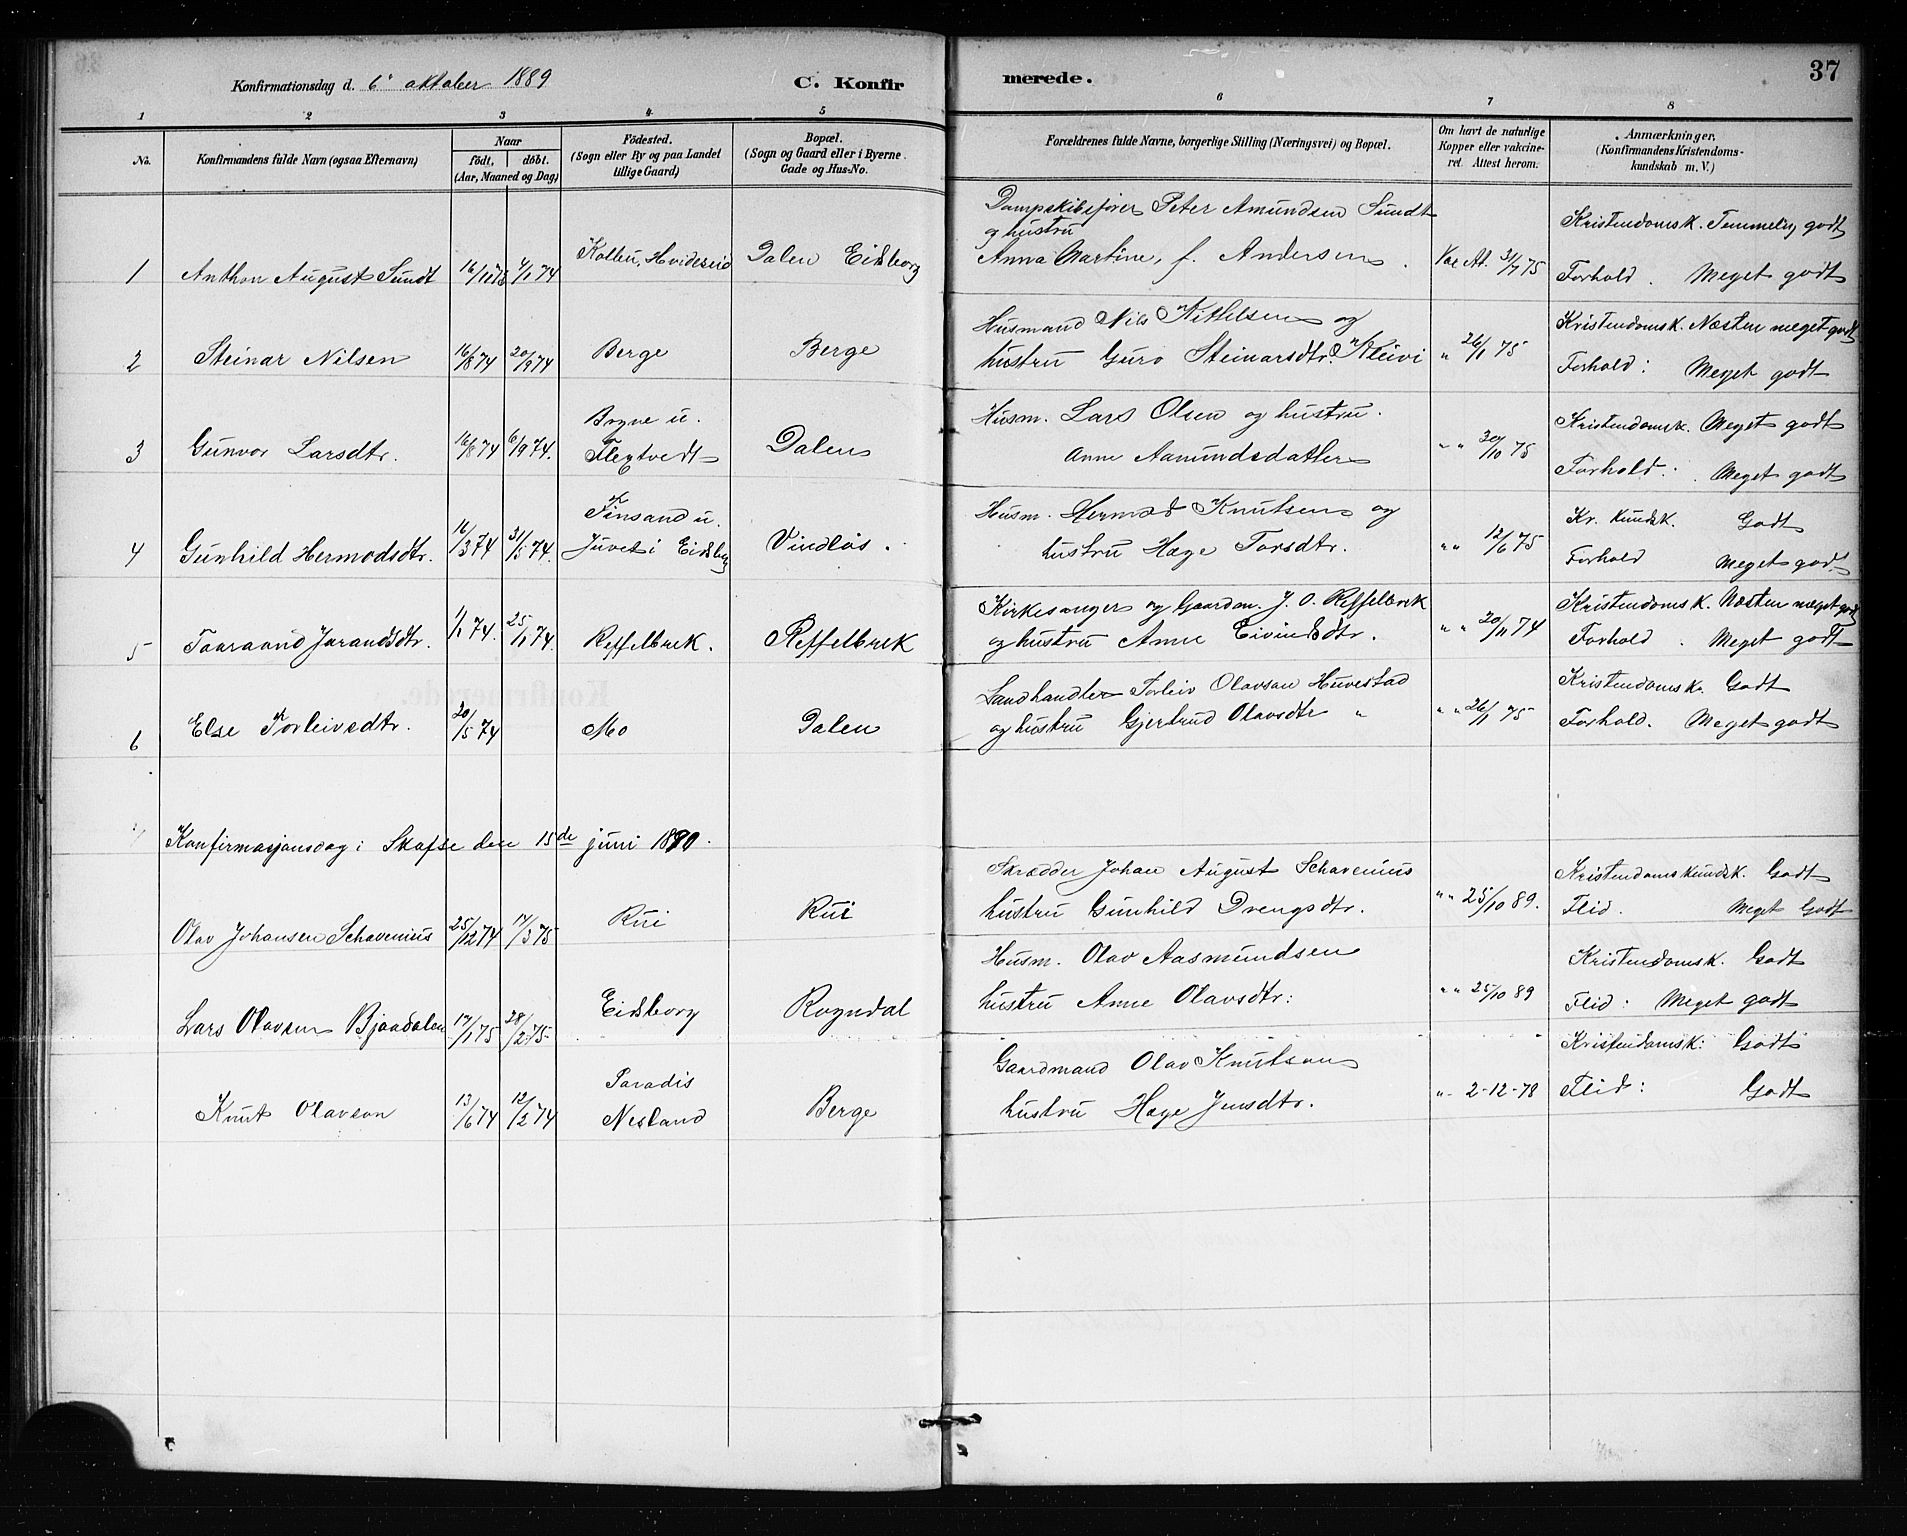 37
Konfirmationsdag d. 6 oktober 1889
C. Konfirmerede.
1 2 3 4 5 6 7 8
No.
Konfirmandens fulde Navn (ogsaa Efternavn)
Naar
födt, döbt.
(Aar, Maaned og Dag)
Födested.
(Sogn eller By og paa Landet
tillige Gaard)
Bopæl.
(Sogn og Gaard eller i Byerne
Gade og Hus-No.
Forældrenes fulde Navne, borgerlige Stilling (Næringsvei) og Bopæl.
Om havt de naturlige
Kopper eller vakcine-
ret. Attest herom.
Anmærkninger.
(Konfirmandens Kristendoms-
kundskab m. V.)
Dampskibsfører Peter Amundsen Sundt
og hustru
Kristendomsk. Temmelig godt
1 Anthon August Sundt 4/1 74 Hvideseid Dalen Eidsborg Anna Martine, f. Andersen. Vac. At. 75
Forhold. Meget godt
Husmand Nils Kittelsen og
Kristendomsk. Næsten meget godt
2 Steinar Nilsen 16/8 74 20/9 74 Berge Berge hustru Guro Steinarsdtr. Kleivi " 26/1 75
Forhold: Meget godt
Husm. Lars Olsen og hustru.
Kristendomsk. Meget godt
3 Gunvor Larsdtr. 16/8 74 6/9 74. u. Dalen Anne Aamundsdatter " " 30/10 75
Forhold: Meget godt
Finsand u.
Husm. Hermod Knutsen og
Kr. kundsk. Godt
4 Gunhild Hermodsdtr. 16/3 74 31/5 74. Juvet i Eidsborg Vindlös. hustru Hæge Torsdtr. " " 12/6 75
Forhold Meget godt
Kirkesanger og Gaardm. J. O.
Kristendomsk. Næsten meget godt
5 Jorandsdtr. 1/1 74. 25/1 74. og hustru Anne Eivindsdtr. " " 74
Forhold. Meget godt
Landhandler Torleiv Olavson Huvestad
Kristendomsk. Godt
6 Else Torleivsdtr. 20/5 74 Mo Dalen og hustru Gjertrud Olavsdtr " " " 26/1 75
Forhold. Meget godt
Konfirmasjonsdag i Skafse den 15de juni 1890.
Skrædder Johan August Schavenius
Kristendomskundsk. Godt
Olav Johansen Schavenius 25/12 74 17/3 75 Rui Rui hustru Gunhild Drengsdtr. " " 25/10 89.
Flid. Meget Godt
Husm. Olav Aasmundsen
Kristendomsk. Godt
Lars Olavsen Bjaadalen 17/1 75 28/2 75 Eidsborg Rogndal hustru Anne Olavsdtr: " " 25/10 89
Flid: Meget godt
Paradis
Gaardmand Olav Knutson
Kristendomsk: Godt
Knut Olavson 13/6 74 74 Nesland Berge hustru Hæge Jensdtr. " 2-12-78
Flid: Godt